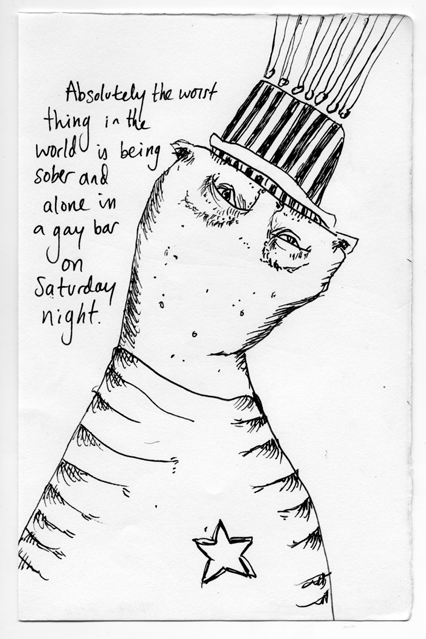 Absolutely the worst
thing in the
world is being
sober and
alone in
a gay bar
on
Saturday
night.